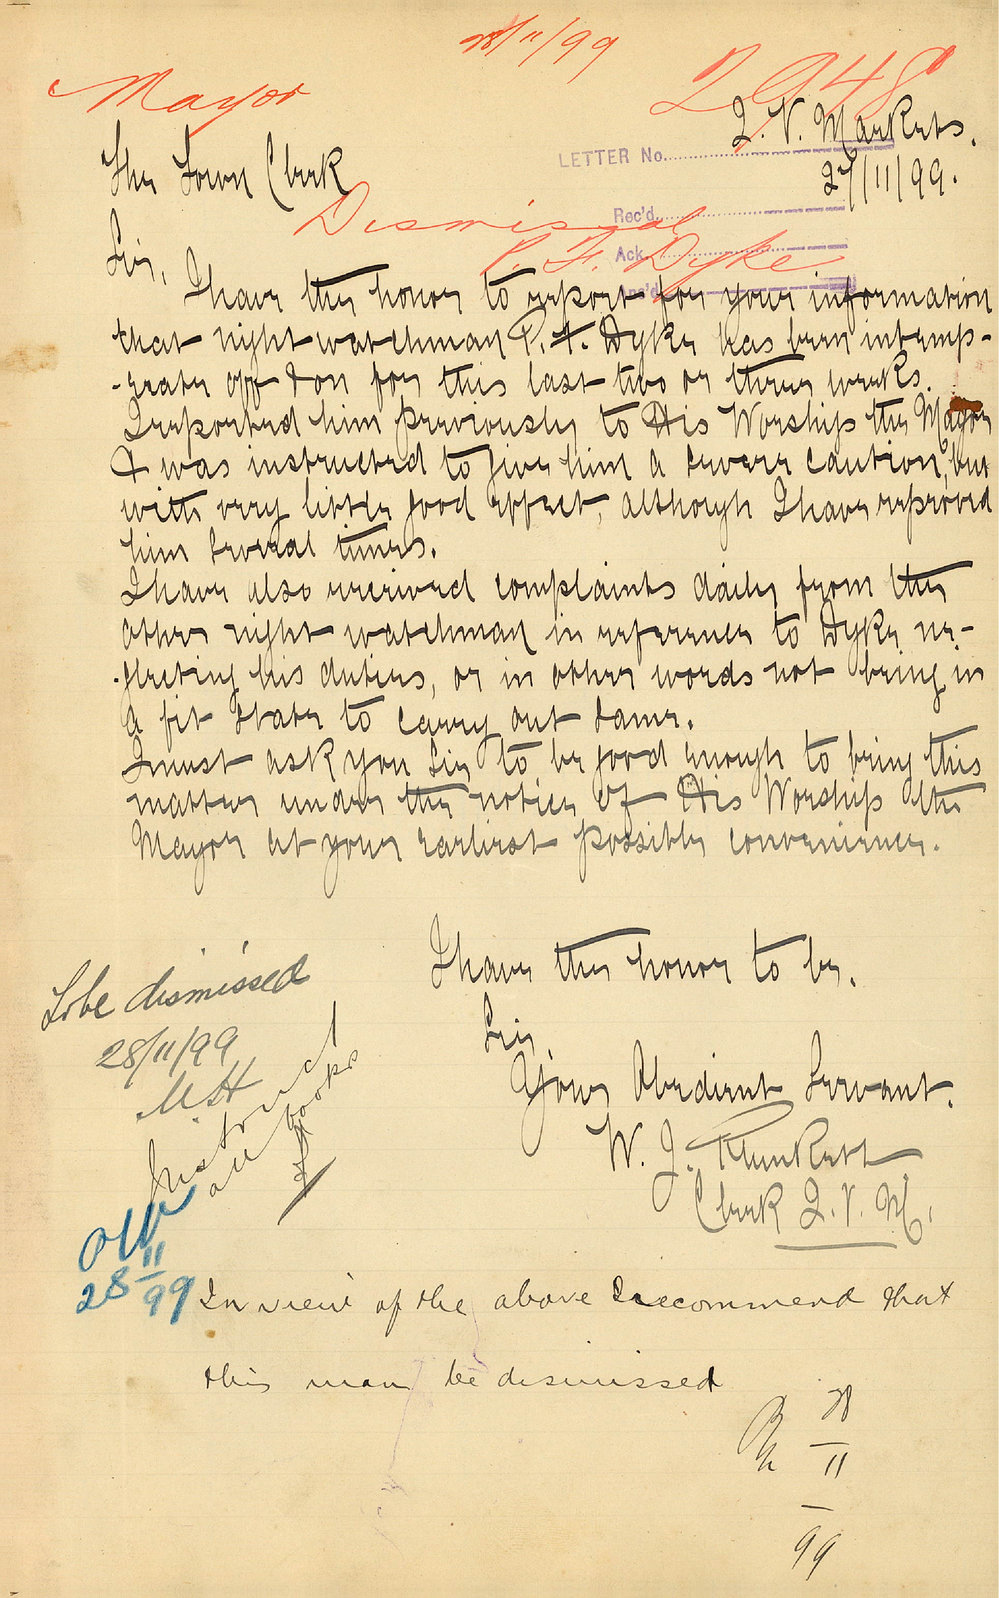 28/11/99
Mayor
2948
Q. V. Markets.
LETTER No.
27/11/99.
The Town Clerk
Rec'd
Dismissal
Ack
P. F. Dyke
Ans'd
Sir,
I have the honor to report for your information
that night watchman P. F. Dyke has been intemp-
-erate off & on for this last two or three weeks.
I reported him previously to His Worship the Mayor
& was instructed to give him a severe caution, but
with very little good effect, although I have reproved
him several times.
I have also received complaints daily from the
other night watchman in reference to Dyke ne-
-glecting his duties, or in other words not being in
a fit state to carry out same.
I must ask you Sir to be good enough to bring this
matter under the notice of His Worship the
Mayor at your earliest possible convenience.
I have the honor to be.
Sir
Your Obedient Servant.
W. J. Plunkett
Clerk Q. V. M.
To be dismissed
28/11/99
Instruct
all books
28/11/99
In view of the above I recommend that
this man be dismissed
28
11
99